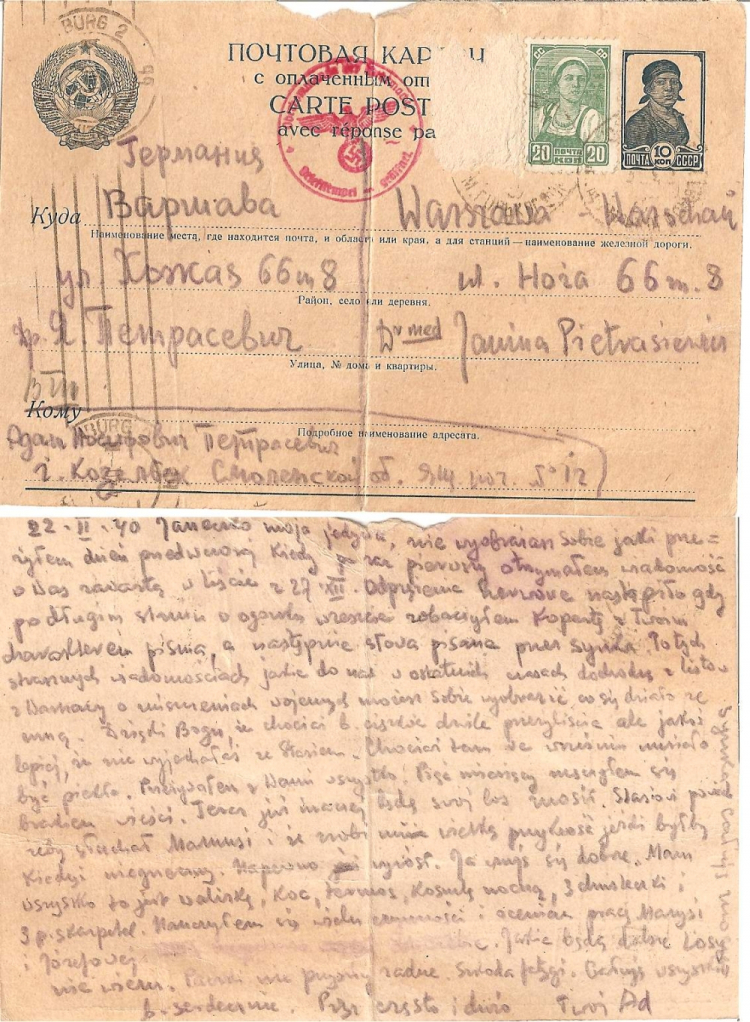 BURG 2
ПОЧТОВАЯ КАР
с оплаченным от
CARTE POST
avec réponse pa
20 ПОЧТА КОП 20
ПОЧТА 10 КОП СССР
Германия
Куда Варшава Warszawa Warschau
Наименование места, где находится почта, и область или края, а для станций — наименование железной дороги.
ул. Хожая 66 m 8 ul. Hoża 66 m. 8
Район, село или деревня.
Др. Я. Петрасевич Dr med Janina Pietrasiewicz
Улица, № дома и квартиры.
Кому
BURG
Подробное наименование адресата.
Адам Иосифович Петрасевич
г. Козельск Смоленской об. ящ. поч. № 12
22·II·40 moja jedyna, nie wyobrażasz Sobie jaki prze=
żyłem dzień przedwczoraj kiedy po raz pierwszy otrzymałem wiadomość
o Was zawartą w liście z 27·XII. Odprężenie nerwowe nastąpiło gdy
po długim staniu w ogonku wreszcie zobaczyłem kopertę z Twoim
charakterem pisma, a następnie słowa pisane przez Synka. Po tych
strasznych wiadomościach jakie do nas w ostatnich czasach dochodzą z listów
z Warszawy o zniszczeniach wojennych możesz Sobie wyobrazić co się działo ze
mną. Dzięki Bogu, że chociaż b. ciężkie chwile przeżyliście ale jakoś
lepiej, że nie wyjechałaś ze Stasiem. Chociaż tam we wrześniu musiało
być piekło. Przeżywałem z Wami wszystko. Pięć miesięcy męczyłem się
brakiem wieści. Teraz już inaczej będę swój los znosić. Stasiowi powiedz
żeby słuchał Mamusi i że zrobi mnie wielką przykrość jeżeli byłby
kiedyś niegrzeczny. Napewno wyrósł. Ja czuję się dobrze. Mam
wszystko to jest walizkę, koc, termos, koszulę nocną, 3 chusteczki i
3 p. skarpetek. Nauczyłem się wielu czynności i oceniam pracę Marysi
i Józefowej. Jakie będą dalsze losy
nie wiem. Paczki nie przyjmuj żadne. Całuję wszystkich
b. serdecznie. Pisz często i dużo Twój Ad
Synka całuję